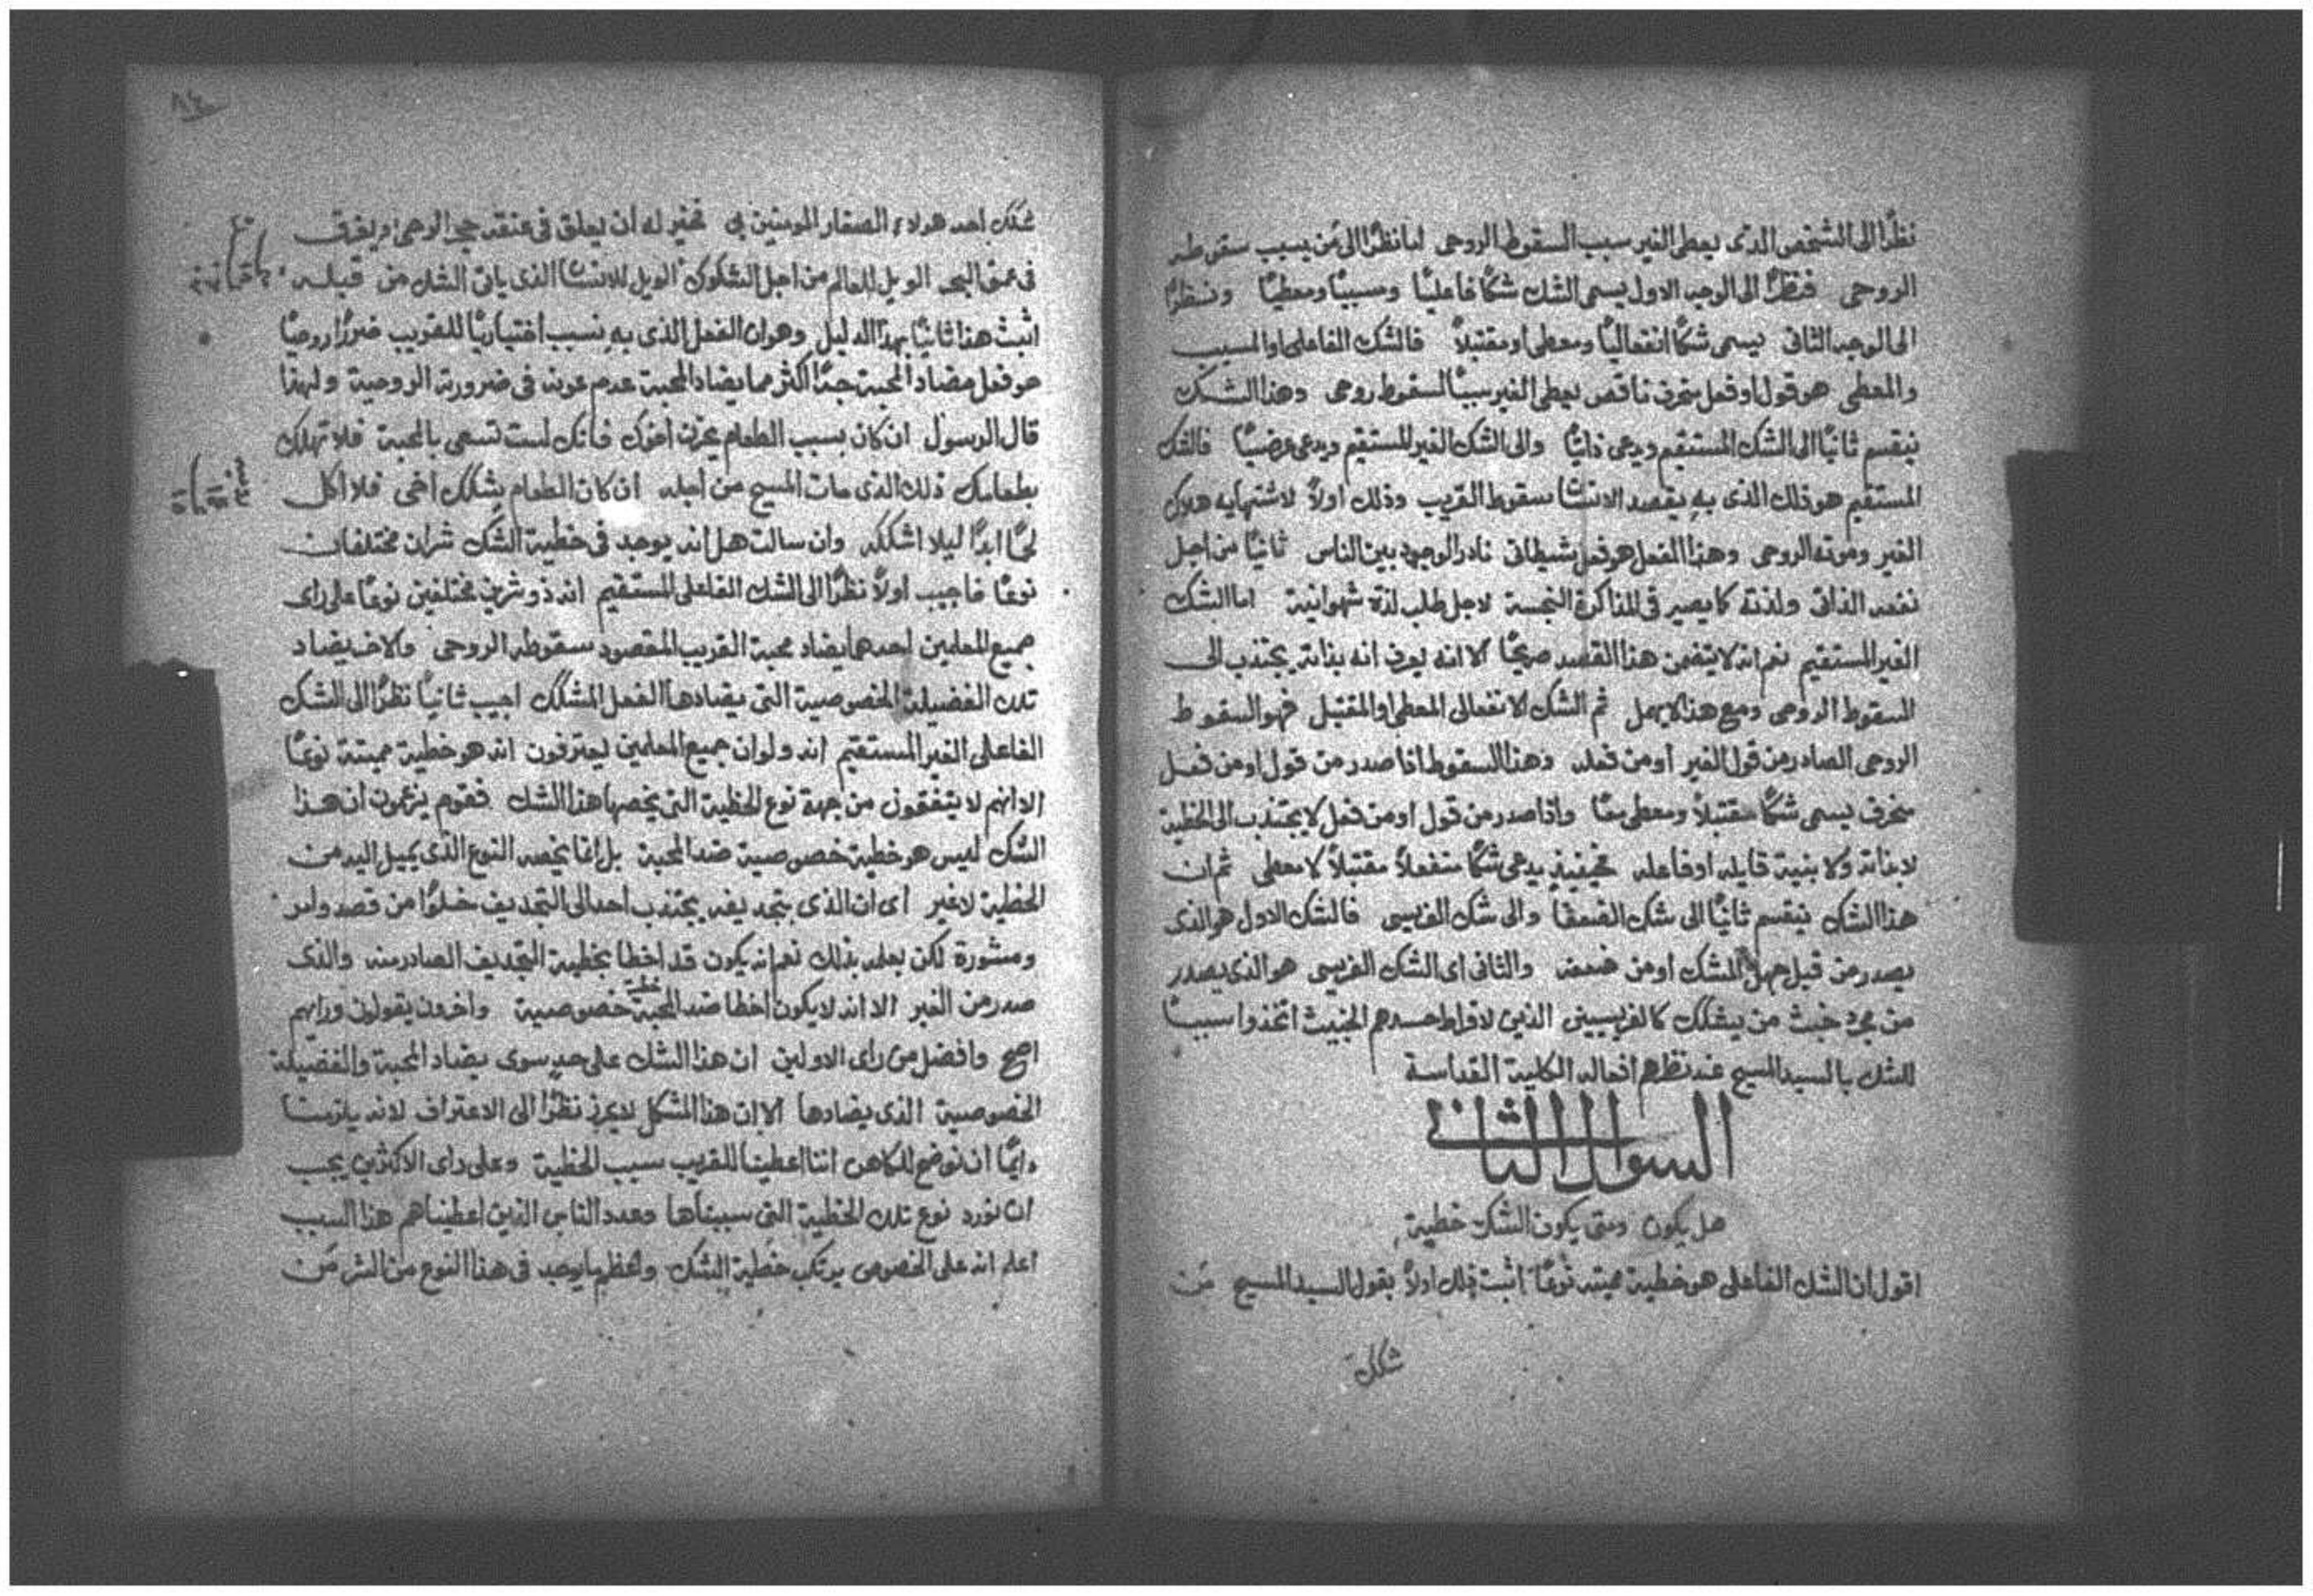 نظرًا الى الشخص الذى يعطى الغير سبب السقوط الروحى اما نظرًا الى مَن يسبب سقوطه
الروحى فنظرًا الى الوجه الاول يسمى الشك شكًا فاعليًا ومسببًا ومعطيًا ونظرًا
الى الوجه الثانى يسمى شكًا انفعاليًا ومعطى او مقتبلاً فالشك الفاعلى او المسبب
والمعطى هو قول او فعل منحرف ناقص يعطى الغير سببًا لسقوط روحى وهذا الشك
ينقسم ثانيًا الى الشك المستقيم ويدعى ذاتيًا والى الشك الغير المستقيم ويدعى عرضيًا فالشك
المستقيم هو ذلك الذى بهِ يقصد الانسان سقوط القريب وذلك اولاً لاشتهايه هلاك
الغير وموته الروحى وهذا الفعل هو فعل شيطانى نادر الوجود بين الناس ثانيًا من اجل
نفعه الذاتى ولذته كما يصير فى المذاكرة النجسة لاجل طلب لذة شهوانية اما الشك
الغير المستقيم نعم انه لا يتضمن هذا القصد صريحًا الا انه يعرف انه بذاته يجتذب الى
السقوط الروحى ومع هذا لا يهمل ثم الشك الانفعالى المعطى او المقتبل فهو السقوط
الروحى الصادر من قول الغير أو من فعله وهذا السقوط اذا صدر من قول او من فعل
منحرف يسمى شكًا مقتبلاً ومعطى معًا واذا صدر من قول او من فعل لا يجتذب الى الخطية
لا بذاته ولا بنية قايله او فاعله فحينيذٍ يدعى شكًا منفعلاً مقتبلاً لا معطى ثم ان
هذا الشك ينقسم ثانيًا الى شك الضعفا والى شك الفريسى فالشك الاول هو الذى
يصدر من قبل جهل المشك او من ضعفه والثانى اى الشك الفريسى هو الذى يصدر
من مجرد خبث من يشكك كالفريسيين الذين لافراط حسدهم الخبيث اتخذوا سببًا
للشك بالسيد المسيح عند نظرهم افعاله الكلية القداسة
السوال الثانى
هل يكون ومتى يكون الشك خطية
اقول ان الشك الفاعلى هو خطية مميتة نوعًا اثبت ذلك اولاً بقول السيد المسيح مَن
شكك
شكك احد هولاء الصغار المومنين بى فخير له أن يعلق فى عنقه حجر الرحى ويغرق
فى عمق البحر الويل للعالم من اجل الشكوك الويل للانسان الذى ياتى الشك من قبله
اثبت هذا ثانيًا بهذا الدليل وهو ان الفعل الذى بهِ نسبب اختياريًا للقريب ضررًا روحيًا
هو فعل مضاد المحبة جدًا اكثر مما يضاد المحبة عدم عونه فى ضرورته الروحية ولهذا
قال الرسول ان كان بسبب الطعام يحزن أخوك فانك لست تسعى بالمحبة فلا تهلك
بطعامك ذلك الذى مات المسيح من أجله ان كان الطعام يشكك أخى فلا اكل
لحمًا ابدًا ليلا اشككه وان سالت هل انه يوجد فى خطية الشك شران مختلفان
نوعًا فاجيب اولاً نظرًا الى الشك الفاعلى المستقيم انه ذو شرين مختلفين نوعًا على راى
جميع المعلمين احدهما يضاد محبة القريب المقصود سقوطه الروحى والاخر يضاد
تلك الفضيلة الخصوصية التى يضادها الفعل المشكك اجيب ثانيًا نظرًا الى الشك
الفاعلى الغير المستقيم انه ولو ان جميع المعلمين يعترفون انه هو خطية مميتة نوعًا
الا انهم لا يتفقون من جهة نوع الخطية التى يخصها هذا الشك فقوم يزعمون ان هذا
الشك ليس هو خطية خصوصية ضد المحبة بل انما يخصه النوع الذى يميل اليه من
الخطية لا غير اى ان الذى بتجديفه يجتذب احدًا الى التجديف خلوًا من قصد وامر
ومشورة لكن بعلمه بذلك نعم انه يكون قد اخطا بخطية التجديف الصادر منه والذى
صدر من الغير الا انه لا يكون اخطا ضد المحبة خطية خصوصية واخرون يقولون ورايهم
اصح وافضل من راى الاولين ان هذا الشك على حدٍ سوى يضاد المحبة والفضيلة
الخصوصية الذى يضادها الا ان هذا المشكل لا يحرز نظرًا الى الاعتراف لانه يلزمنا
دايمًا ان نوضح للكاهن اننا اعطينا للقريب سبب الخطية وعلى راى الاكثرين يجب
ان نورد نوع تلك الخطية التى سببناها وعدد الناس الذين اعطيناهم هذا السبب
اعلم انه على الخصوص يرتكب خطية الشك واعظم ما يوجد فى هذا النوع من الشر مَن